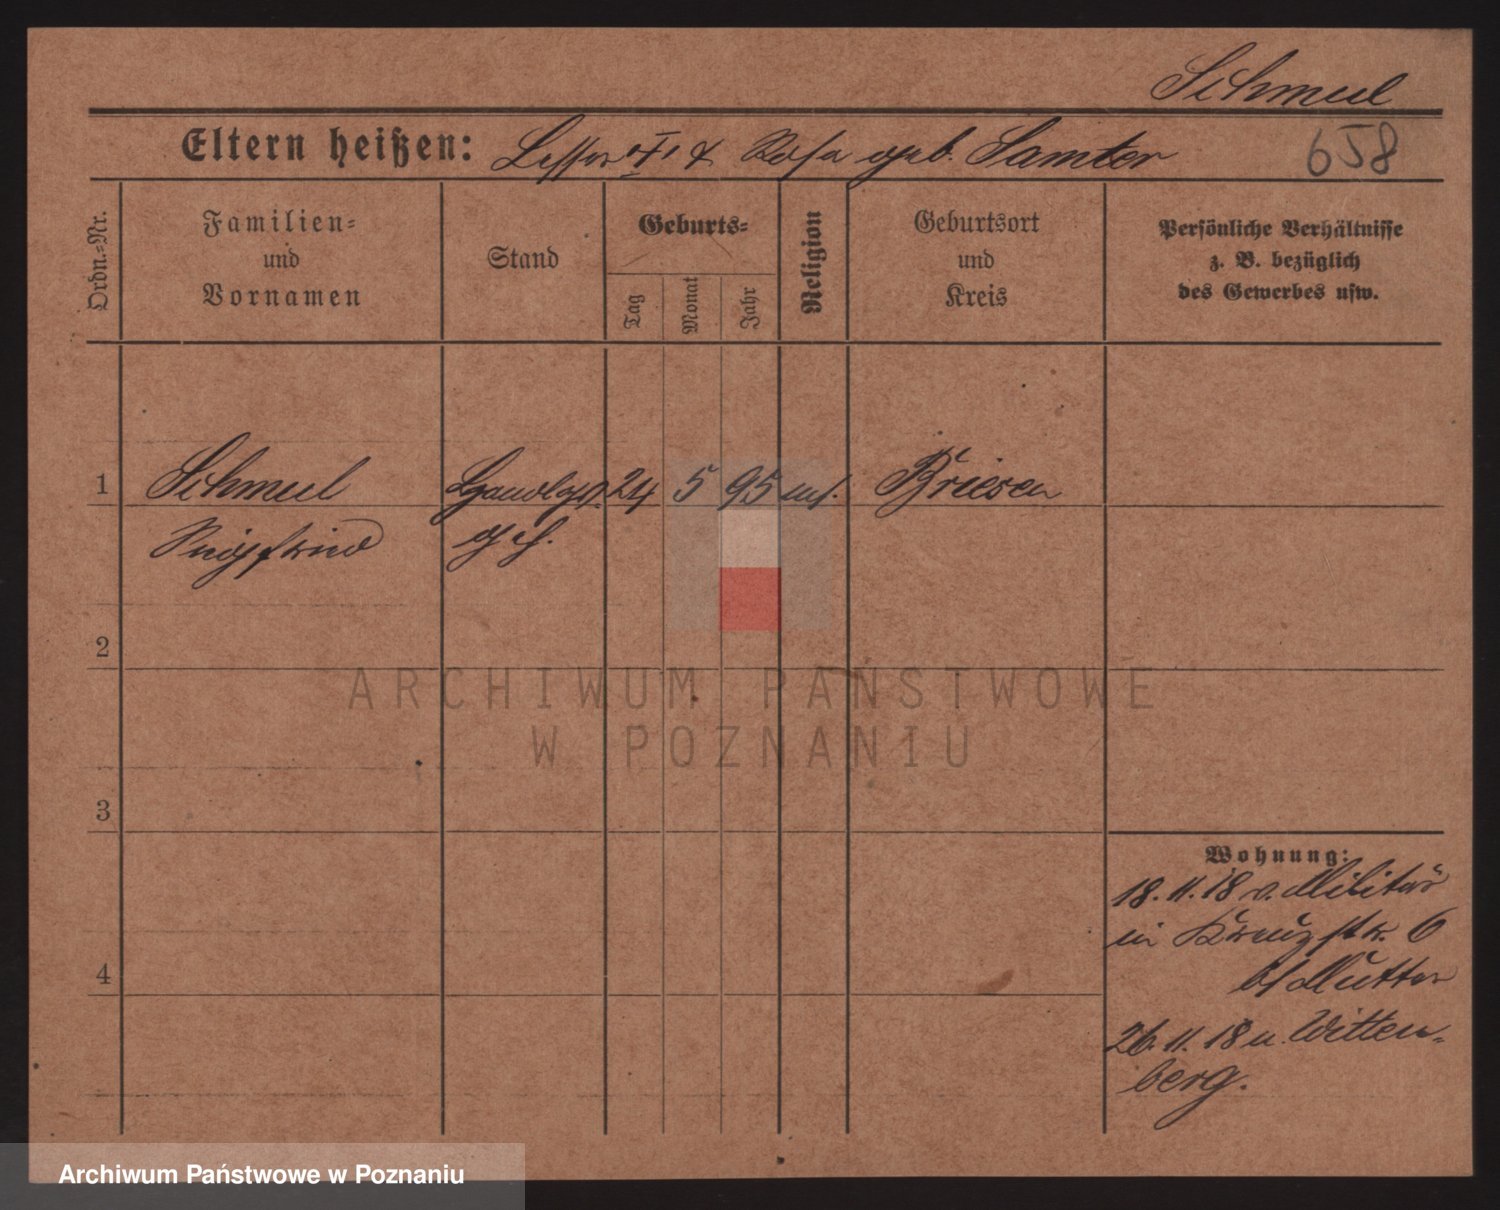 Schmul
Eltern heißen: Lesser † & Rosa geb. Samter 658
Ordn.-Nr.
Familien-
und
Vornamen
Stand
Geburts-
Tag
Monat
Jahr
Religion
Geburtsort
und
Kreis
Persönliche Verhältnisse
z. B. bezüglich
des Gewerbes usw.
1 Schmul Handlgs. 24 5 95 mos. Briesen
Siegfried
2
3
4
Wohnung:
18.11.18 v. Militär
in Kreuzstr. 6
b/ Mutter
26.11.18 n. Witten-
berg.
ARCHIWUM PAŃSTWOWE
W POZNANIU
Archiwum Państwowe w Poznaniu